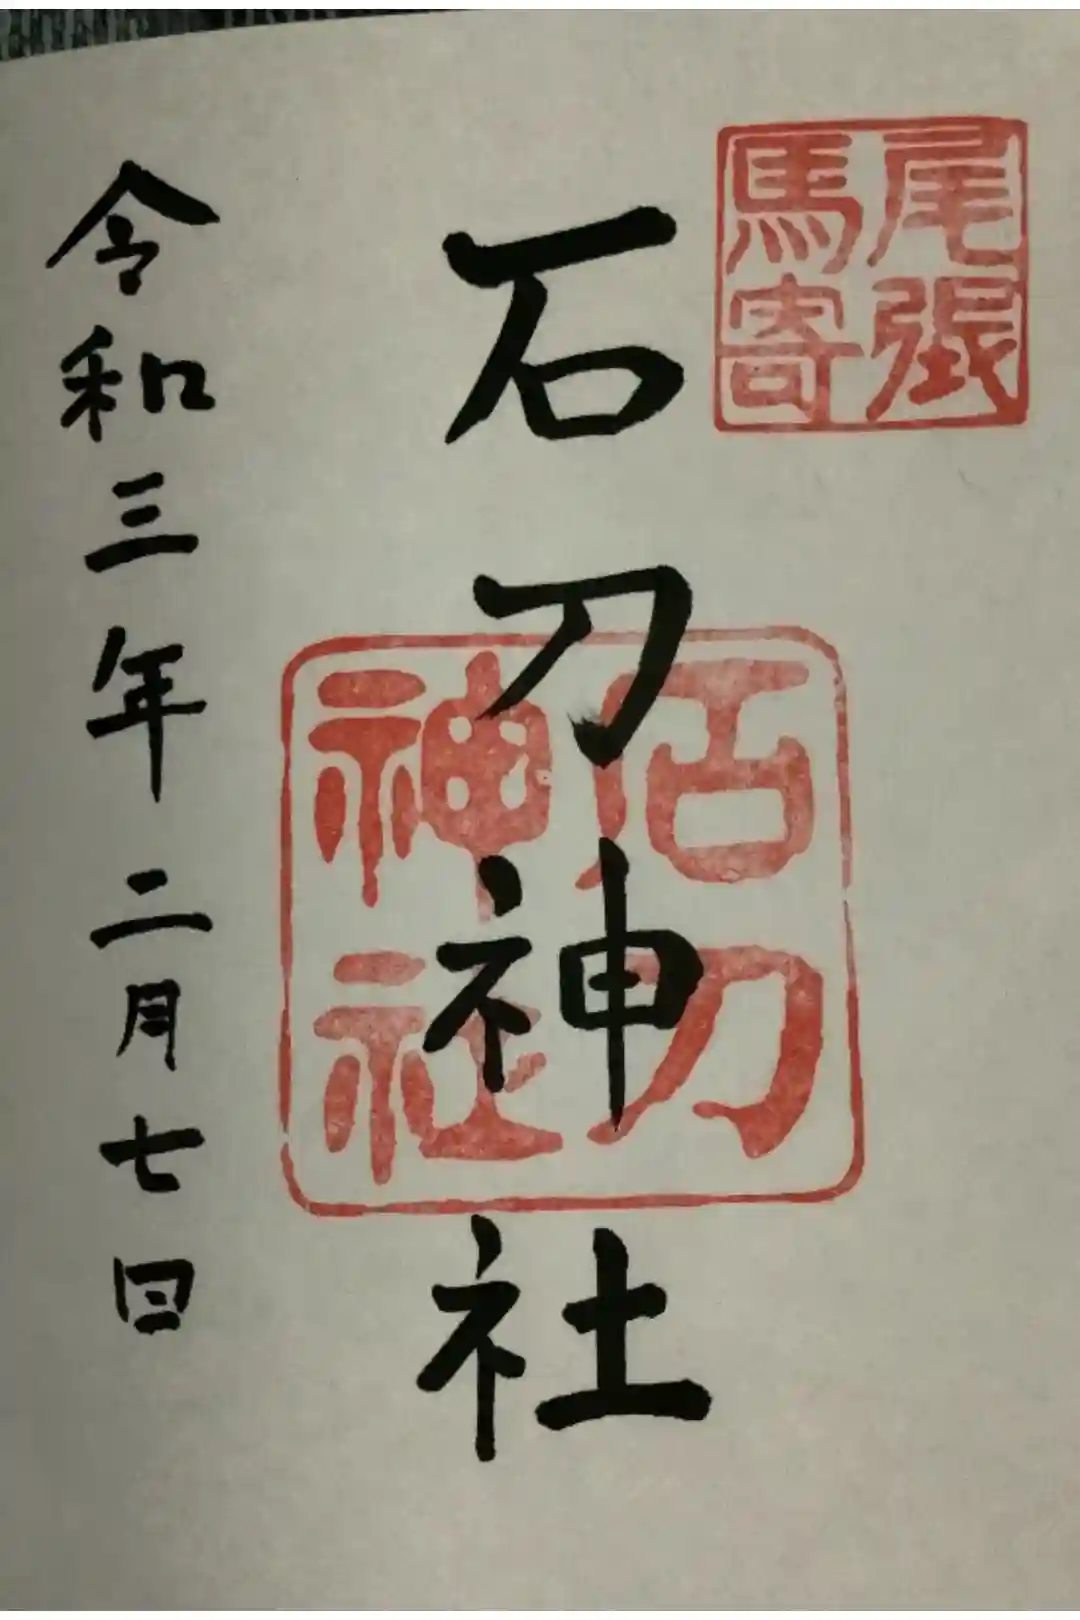 尾張
馬寄
石刀神社
石刀
神社
令和三年二月七日